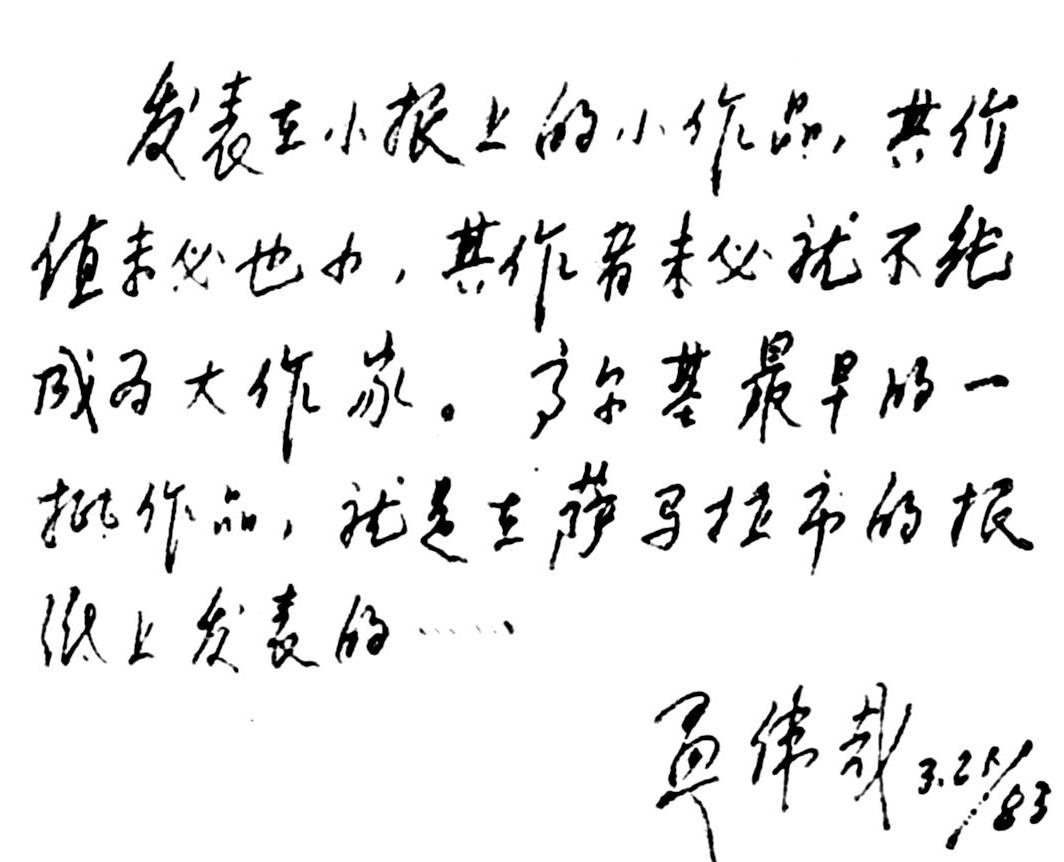 发表在小报上的小作品，其价
值未必也小，其作者未必就不能
成为大作家。高尔基最早的一
批作品，就是在萨马拉市的报
纸上发表的……
孟伟哉 3.25/83